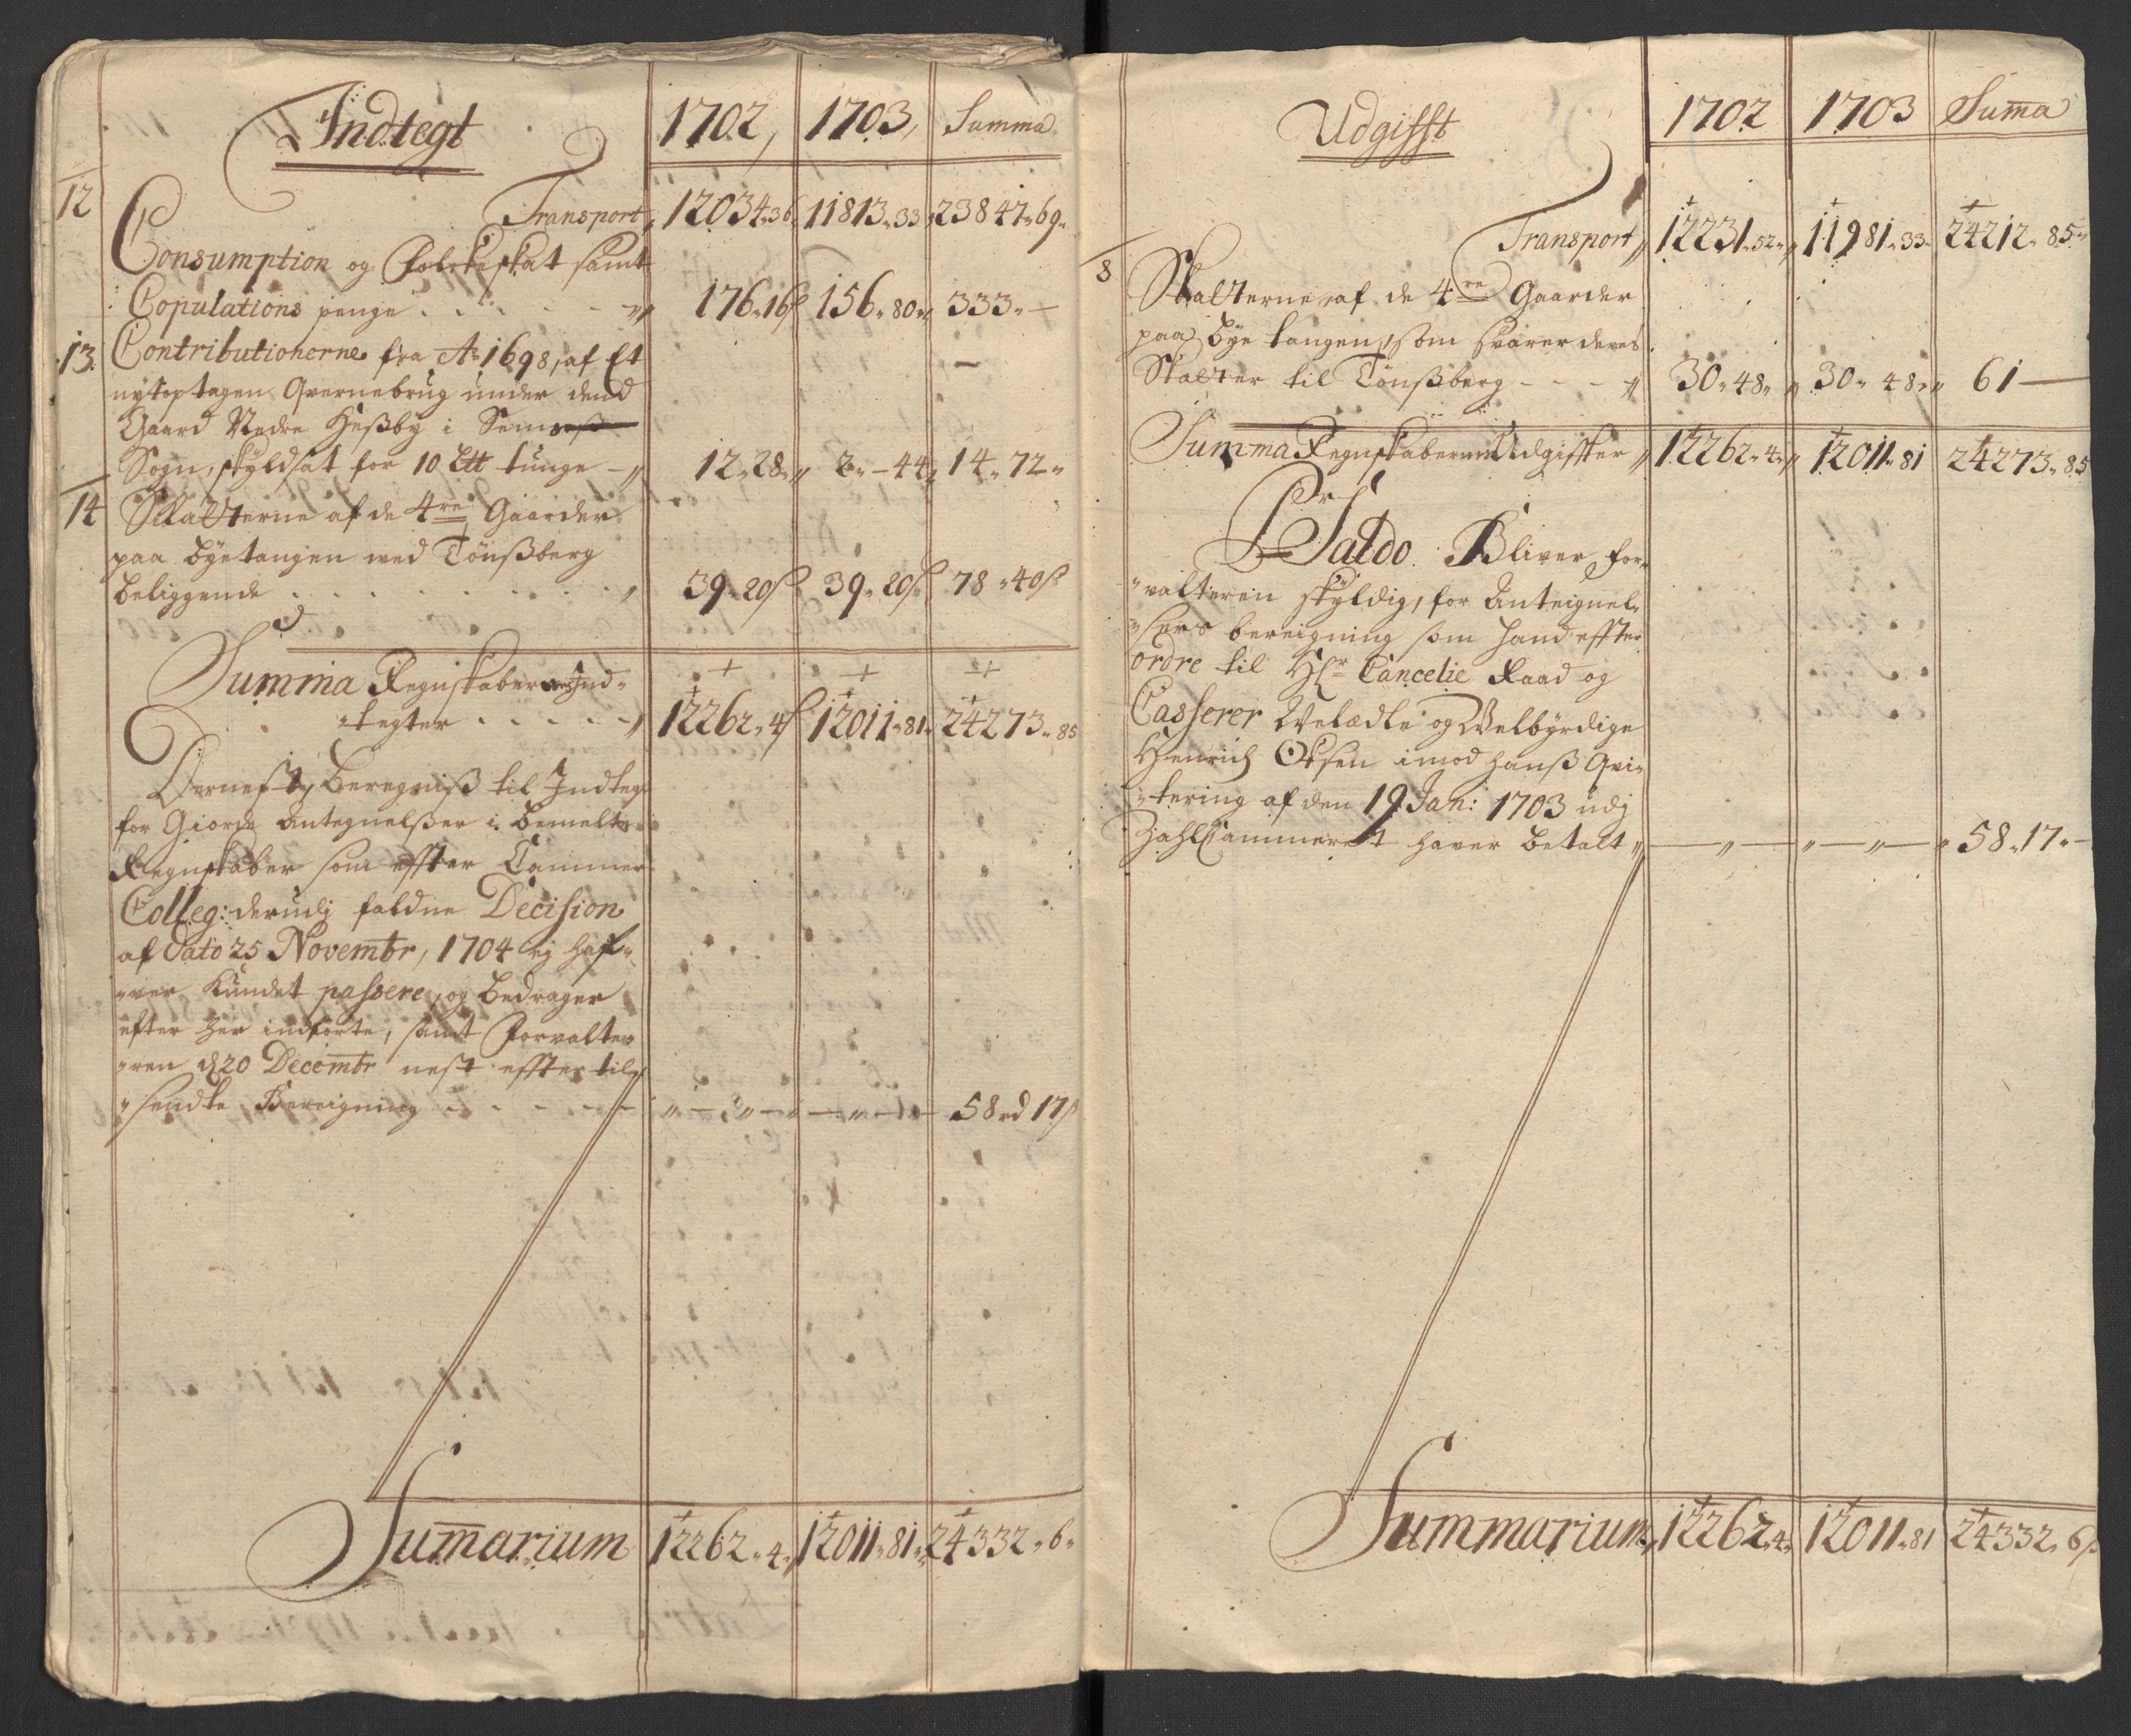 Indtegt 1702, 1703, Summa
12 Transport, 12034„36 11813„33 23847„69„
Consumption og Folkeskat samt
Copulations penge . . . . „ 176„16ß 156„80„ 333„—
13. Contributionerne fra Ao 1698, af Et
nyt optagen Qvernebrug under dend
Gaard Nedre Heßby i Sem
Sogn, skyldsat for 10 Ltt tunge —„ 12„28„ 2„—44„ 14„72„
14 Skatterne af de 4re Gaarder
paa Byetangen wed Tönßberg
beliggende . . . . . . . , 39„20ß 39„20ß 78„40ß
Summa Regnskabernes Ind„
„tegter . . . . . „ 12262„4ß 12011„81„ 24273„85
Dernest beregniß til Indtegt
for Giorde Antegnelßer i bemelte
Regnskaber som effter Cammer
Colleg: derudj faldne Decision
af Dato 25 Novembr, 1704 ej haf„
„ver kundet passere, og bedrager
efter her indförte, samt Forvalte„
„ren d 20 Decembr nest effter til„
„sendte Bereigning . - - - - „—„— —„— 58rd 17ß
Sumarium 12262„4„ 12011„81„ 24332„6„
Udgifft 1702 1703 Suma
Transport„ 12231„52„ 11981„33„ 24212„85„
8 Skatterne af de 4re Gaarder
paa Bye tangen, som svarer deres
Skatter til Tönßberg - - - „ 30„48„ 30„48„ 61—
Summa Regnskabernes Udgiffter„ 12262„4„ 12011„81 24273„85
Pr Saldo Bliver for„
„valteren skyldig, for Anteignel„
„sers bereigning som hand effter
ordre til Hr Cancelie Raad og
Casserer Velædle og Velbyrdige
Henrich Oksen imod hanß Qvi„
„tering af den 19 Jan: 1703 udj
Zahlcammeret haver betalt„ —„— „—„— „58„17„-
Summarium„ 12262„4„ 12011„81 24332„6ß